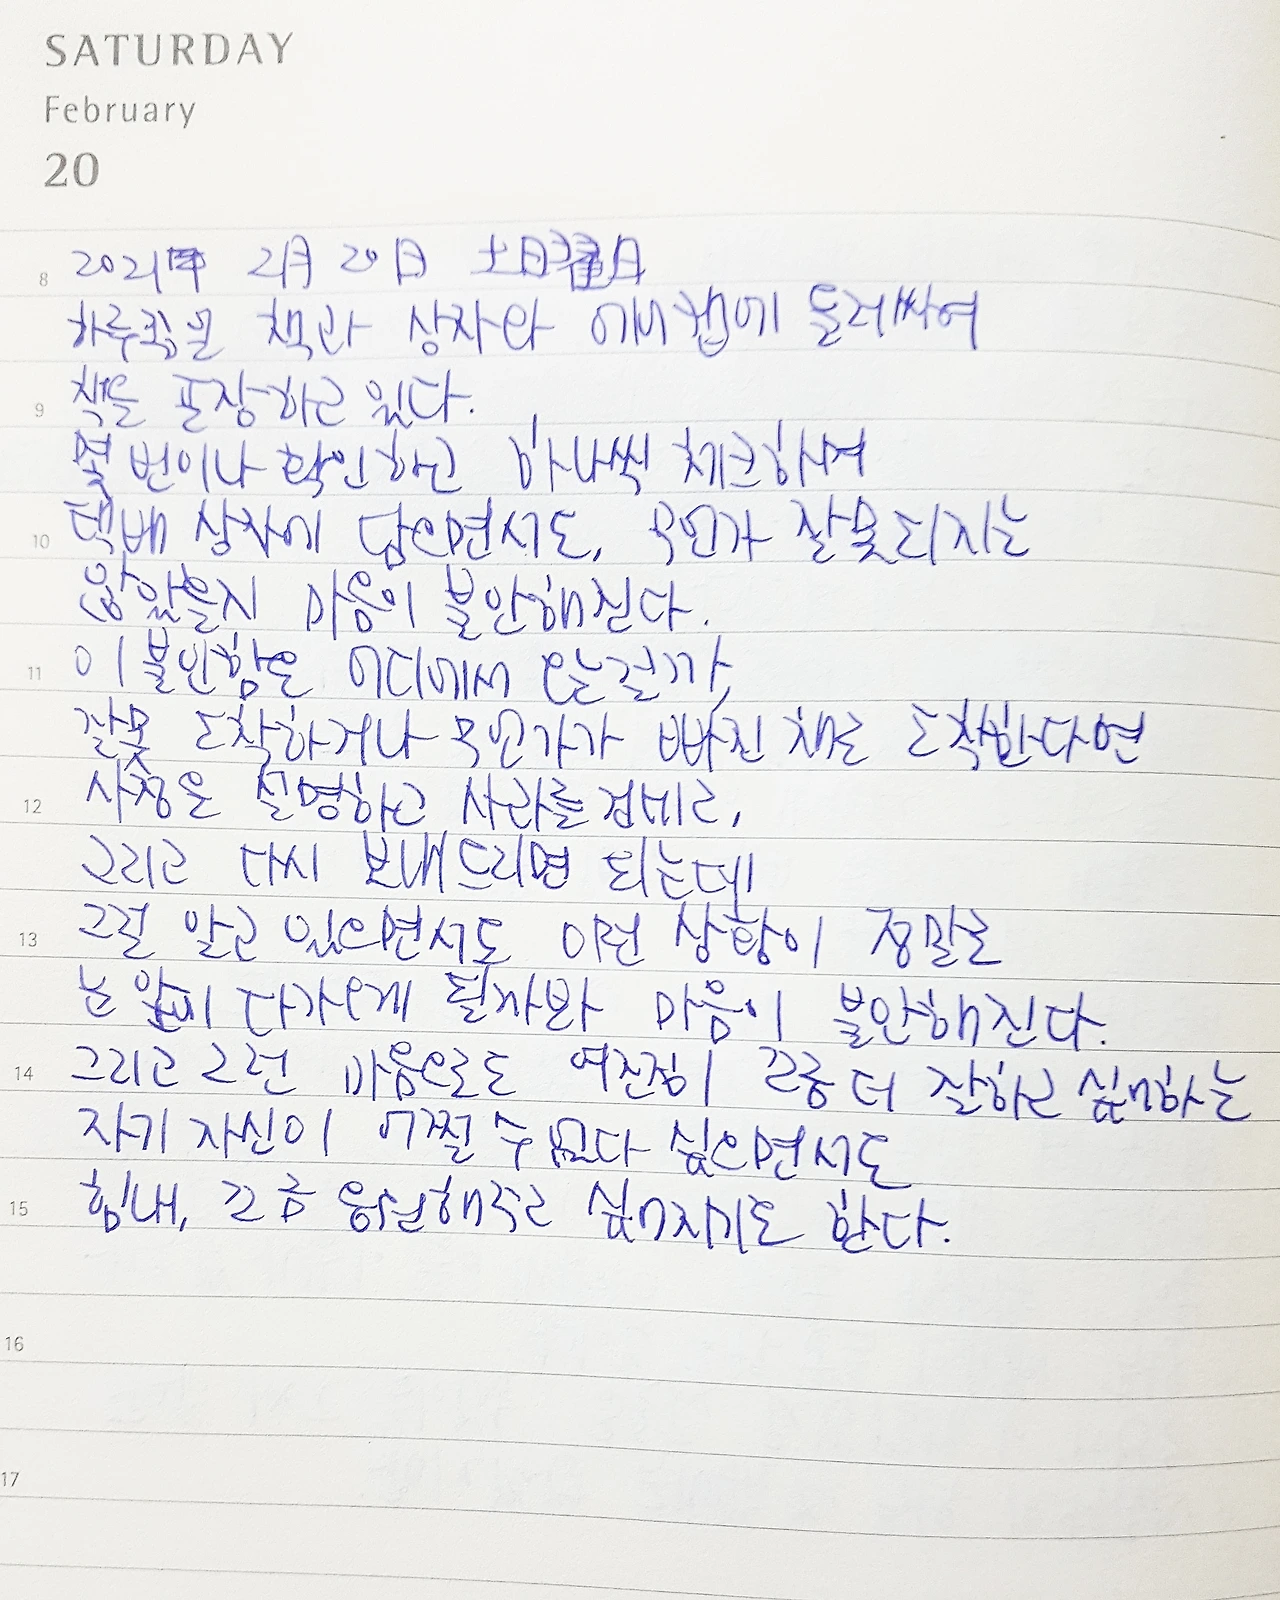 SATURDAY
February
20
8 2021年 2月 20日 土曜日
하루종일 책과 상자와 에어캡에 둘러싸여
9 책을 포장하고 있다.
몇 번이나 확인하고 하나씩 체크하며
10 택배 상자에 담으면서도, 무언가 잘못되지는
않았을지 마음이 불안해진다.
11 이 불안함은 어디에서 오는걸까,
잘못 도착하거나 무언가가 빠진 채로 도착한다면
12 사정을 설명하고 사과를 건네고,
그리고 다시 보내드리면 되는데
13 그걸 알고 있으면서도 이런 상황이 정말로
눈 앞에 다가오게 될까봐 마음이 불안해진다.
14 그리고 그런 마음으로도 여전히 조금 더 잘하고 싶어하는
자기 자신이 어쩔 수 없다 싶으면서도
15 힘내, 조금 응원해주고 싶어지기도 한다.
16
17